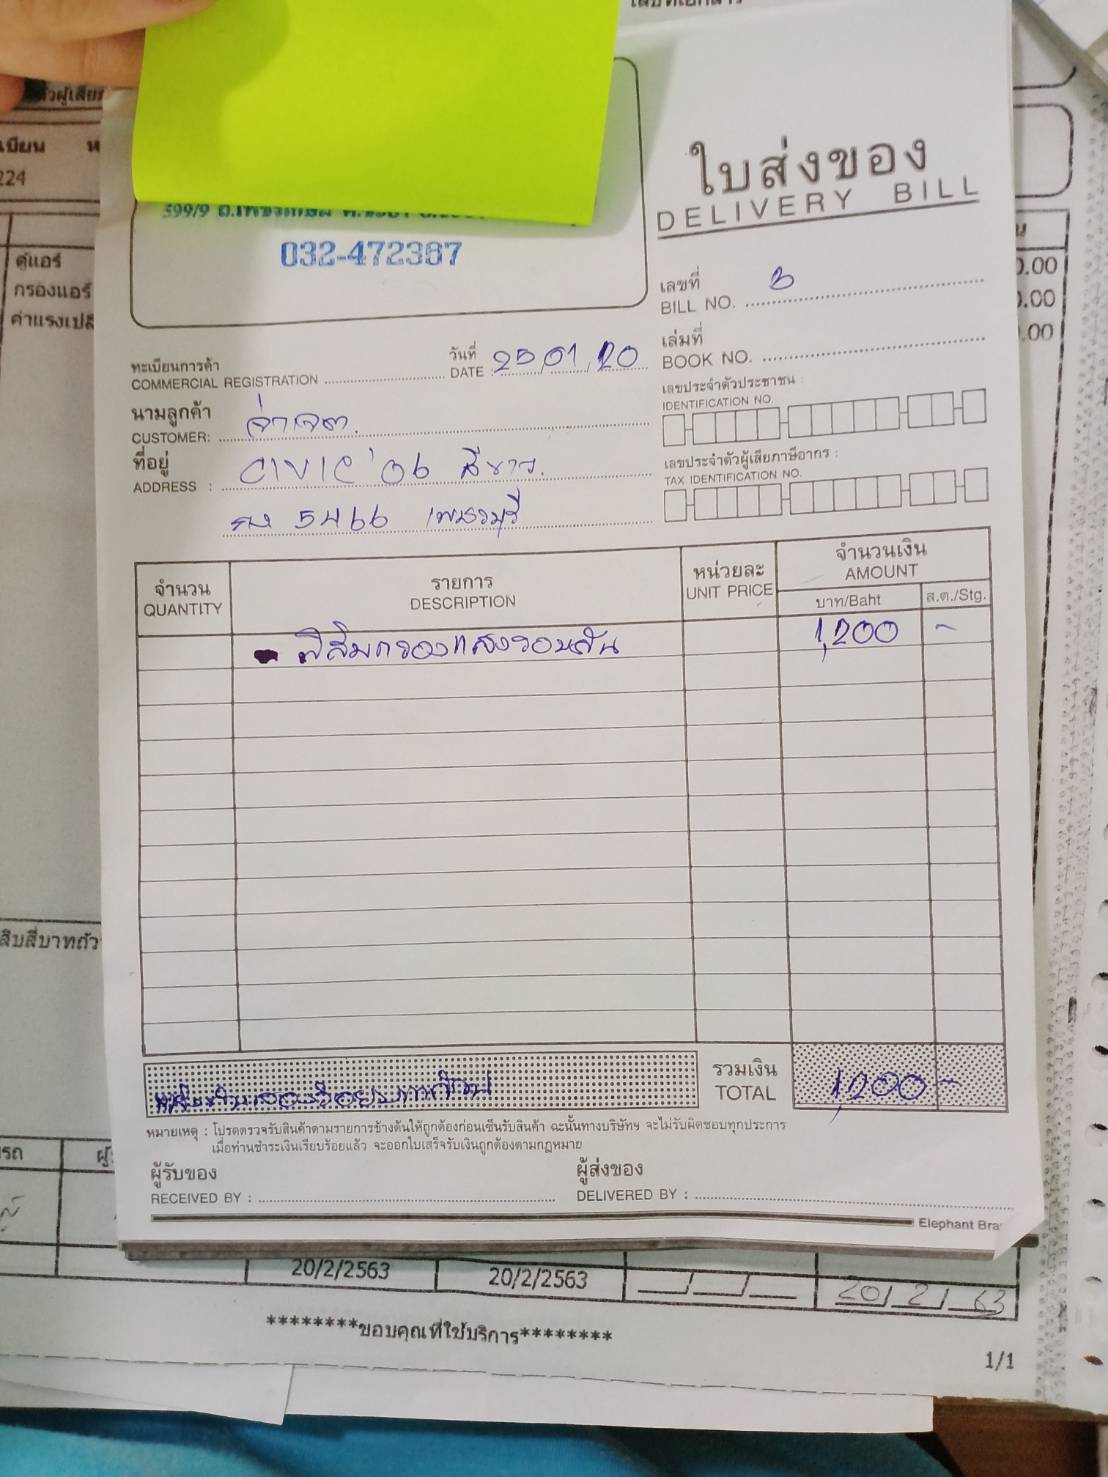 ใบส่งของ
DELIVERY BILL
032-472387
เลขที่
BILL NO. 3
เล่มที่
BOOK NO.
ทะเบียนการค้า
COMMERCIAL REGISTRATION
วันที่
DATE 25/01/20
เลขประจำตัวประชาชน :
IDENTIFICATION NO.
นามลูกค้า
CUSTOMER: จ่าเจต.
ที่อยู่
ADDRESS : CIVIC '06 สีขาว.
5466 เพชรบุรี
เลขประจำตัวผู้เสียภาษีอากร :
TAX IDENTIFICATION NO.
จำนวน
QUANTITY
รายการ
DESCRIPTION
หน่วยละ
UNIT PRICE
จำนวนเงิน
AMOUNT
บาท/Baht
ส.ต./Stg.
ฟิล์มกรองแสงรอบคัน 1,200 -
รวมเงิน
TOTAL 1,200 -
หมายเหตุ : โปรดตรวจรับสินค้าตามรายการข้างต้นให้ถูกต้องก่อนเซ็นรับสินค้า ฉะนั้นทางบริษัทฯ จะไม่รับผิดชอบทุกประการ
เมื่อท่านชำระเงินเรียบร้อยแล้ว จะออกใบเสร็จรับเงินถูกต้องตามกฎหมาย
ผู้รับของ
RECEIVED BY :
ผู้ส่งของ
DELIVERED BY :
Elephant Bra
224
ตู้แอร์
กรองแอร์
ค่าแรงเปลี
0.00
0.00
.00
สิบสี่บาทถ้ว
20/2/2563
20/2/2563
20/2/63
********ขอบคุณที่ใช้บริการ********
1/1